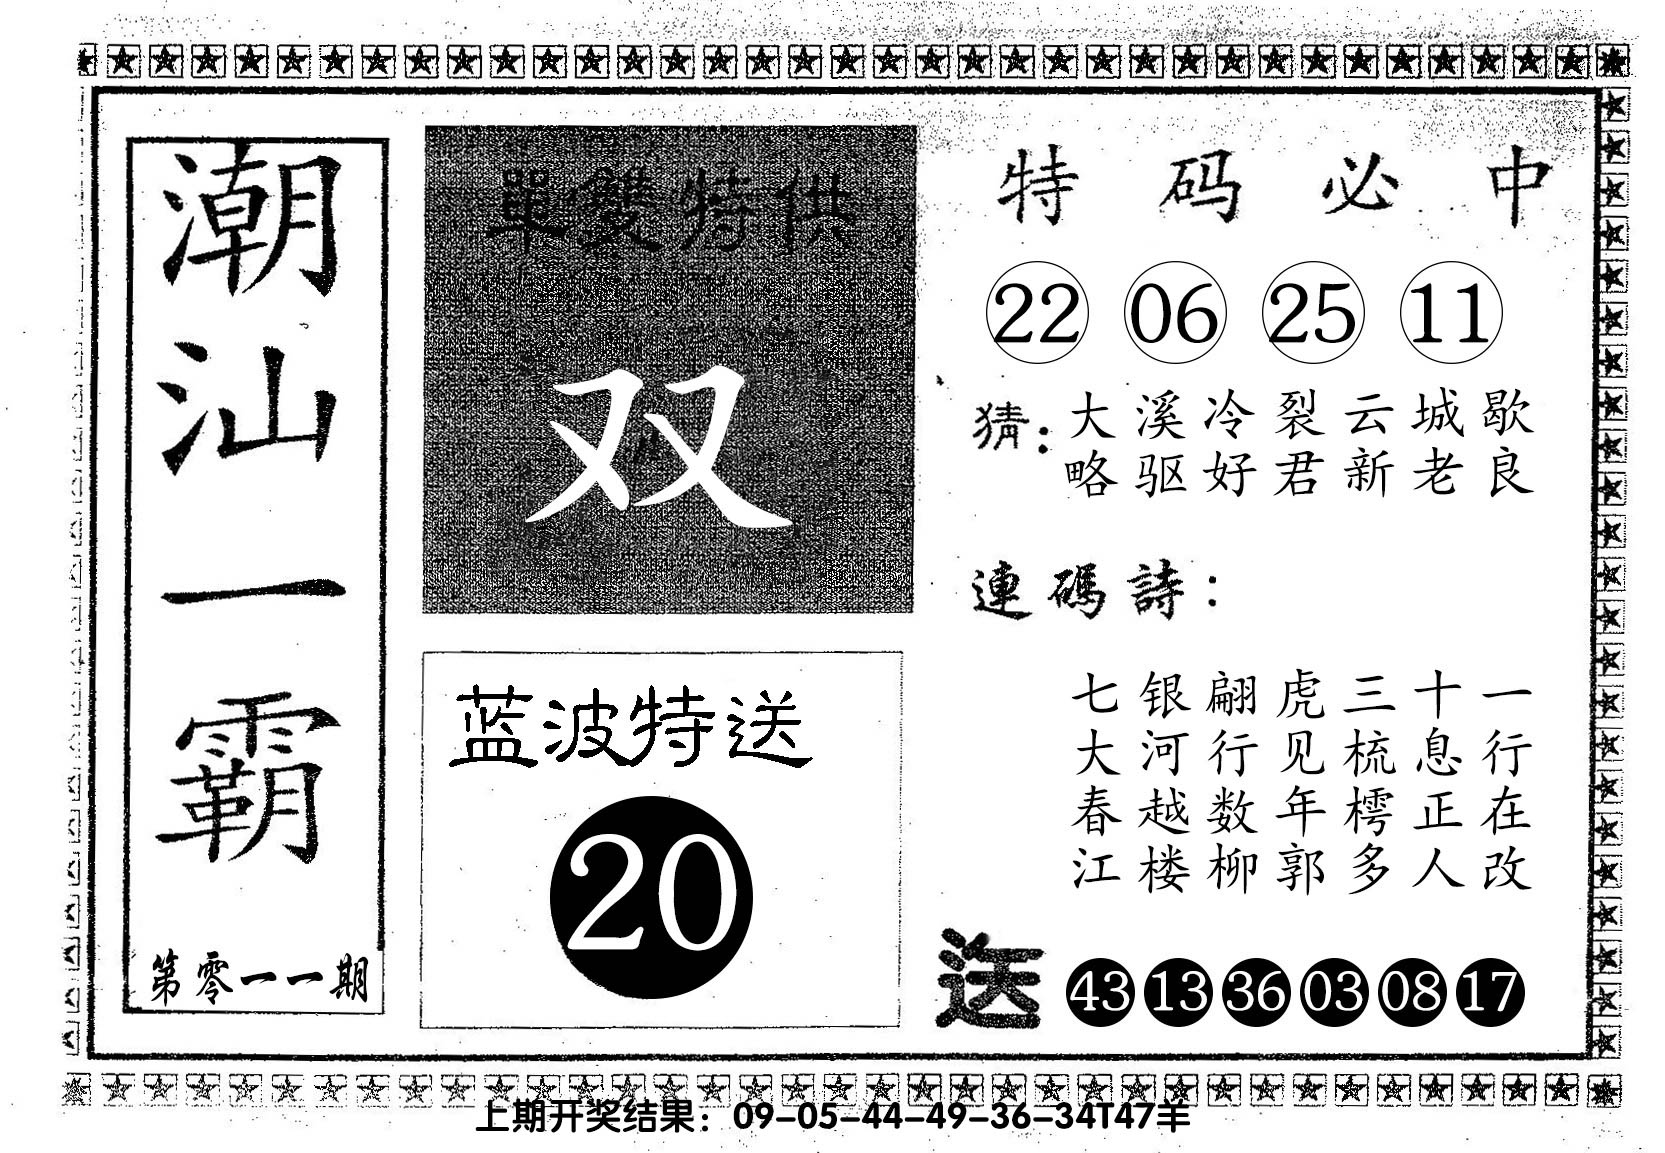 潮汕一霸
第零一一期
單雙特供
双
蓝波特送
20
特码必中
22 06 25 11
猜：大溪冷裂云城歇
略驱好君新老良
連碼詩：
七银翩虎三十一
大河行见梳息行
春越数年樗正在
江楼柳郭多人改
送 43 13 36 03 08 17
上期开奖结果：09-05-44-49-36-34T47羊